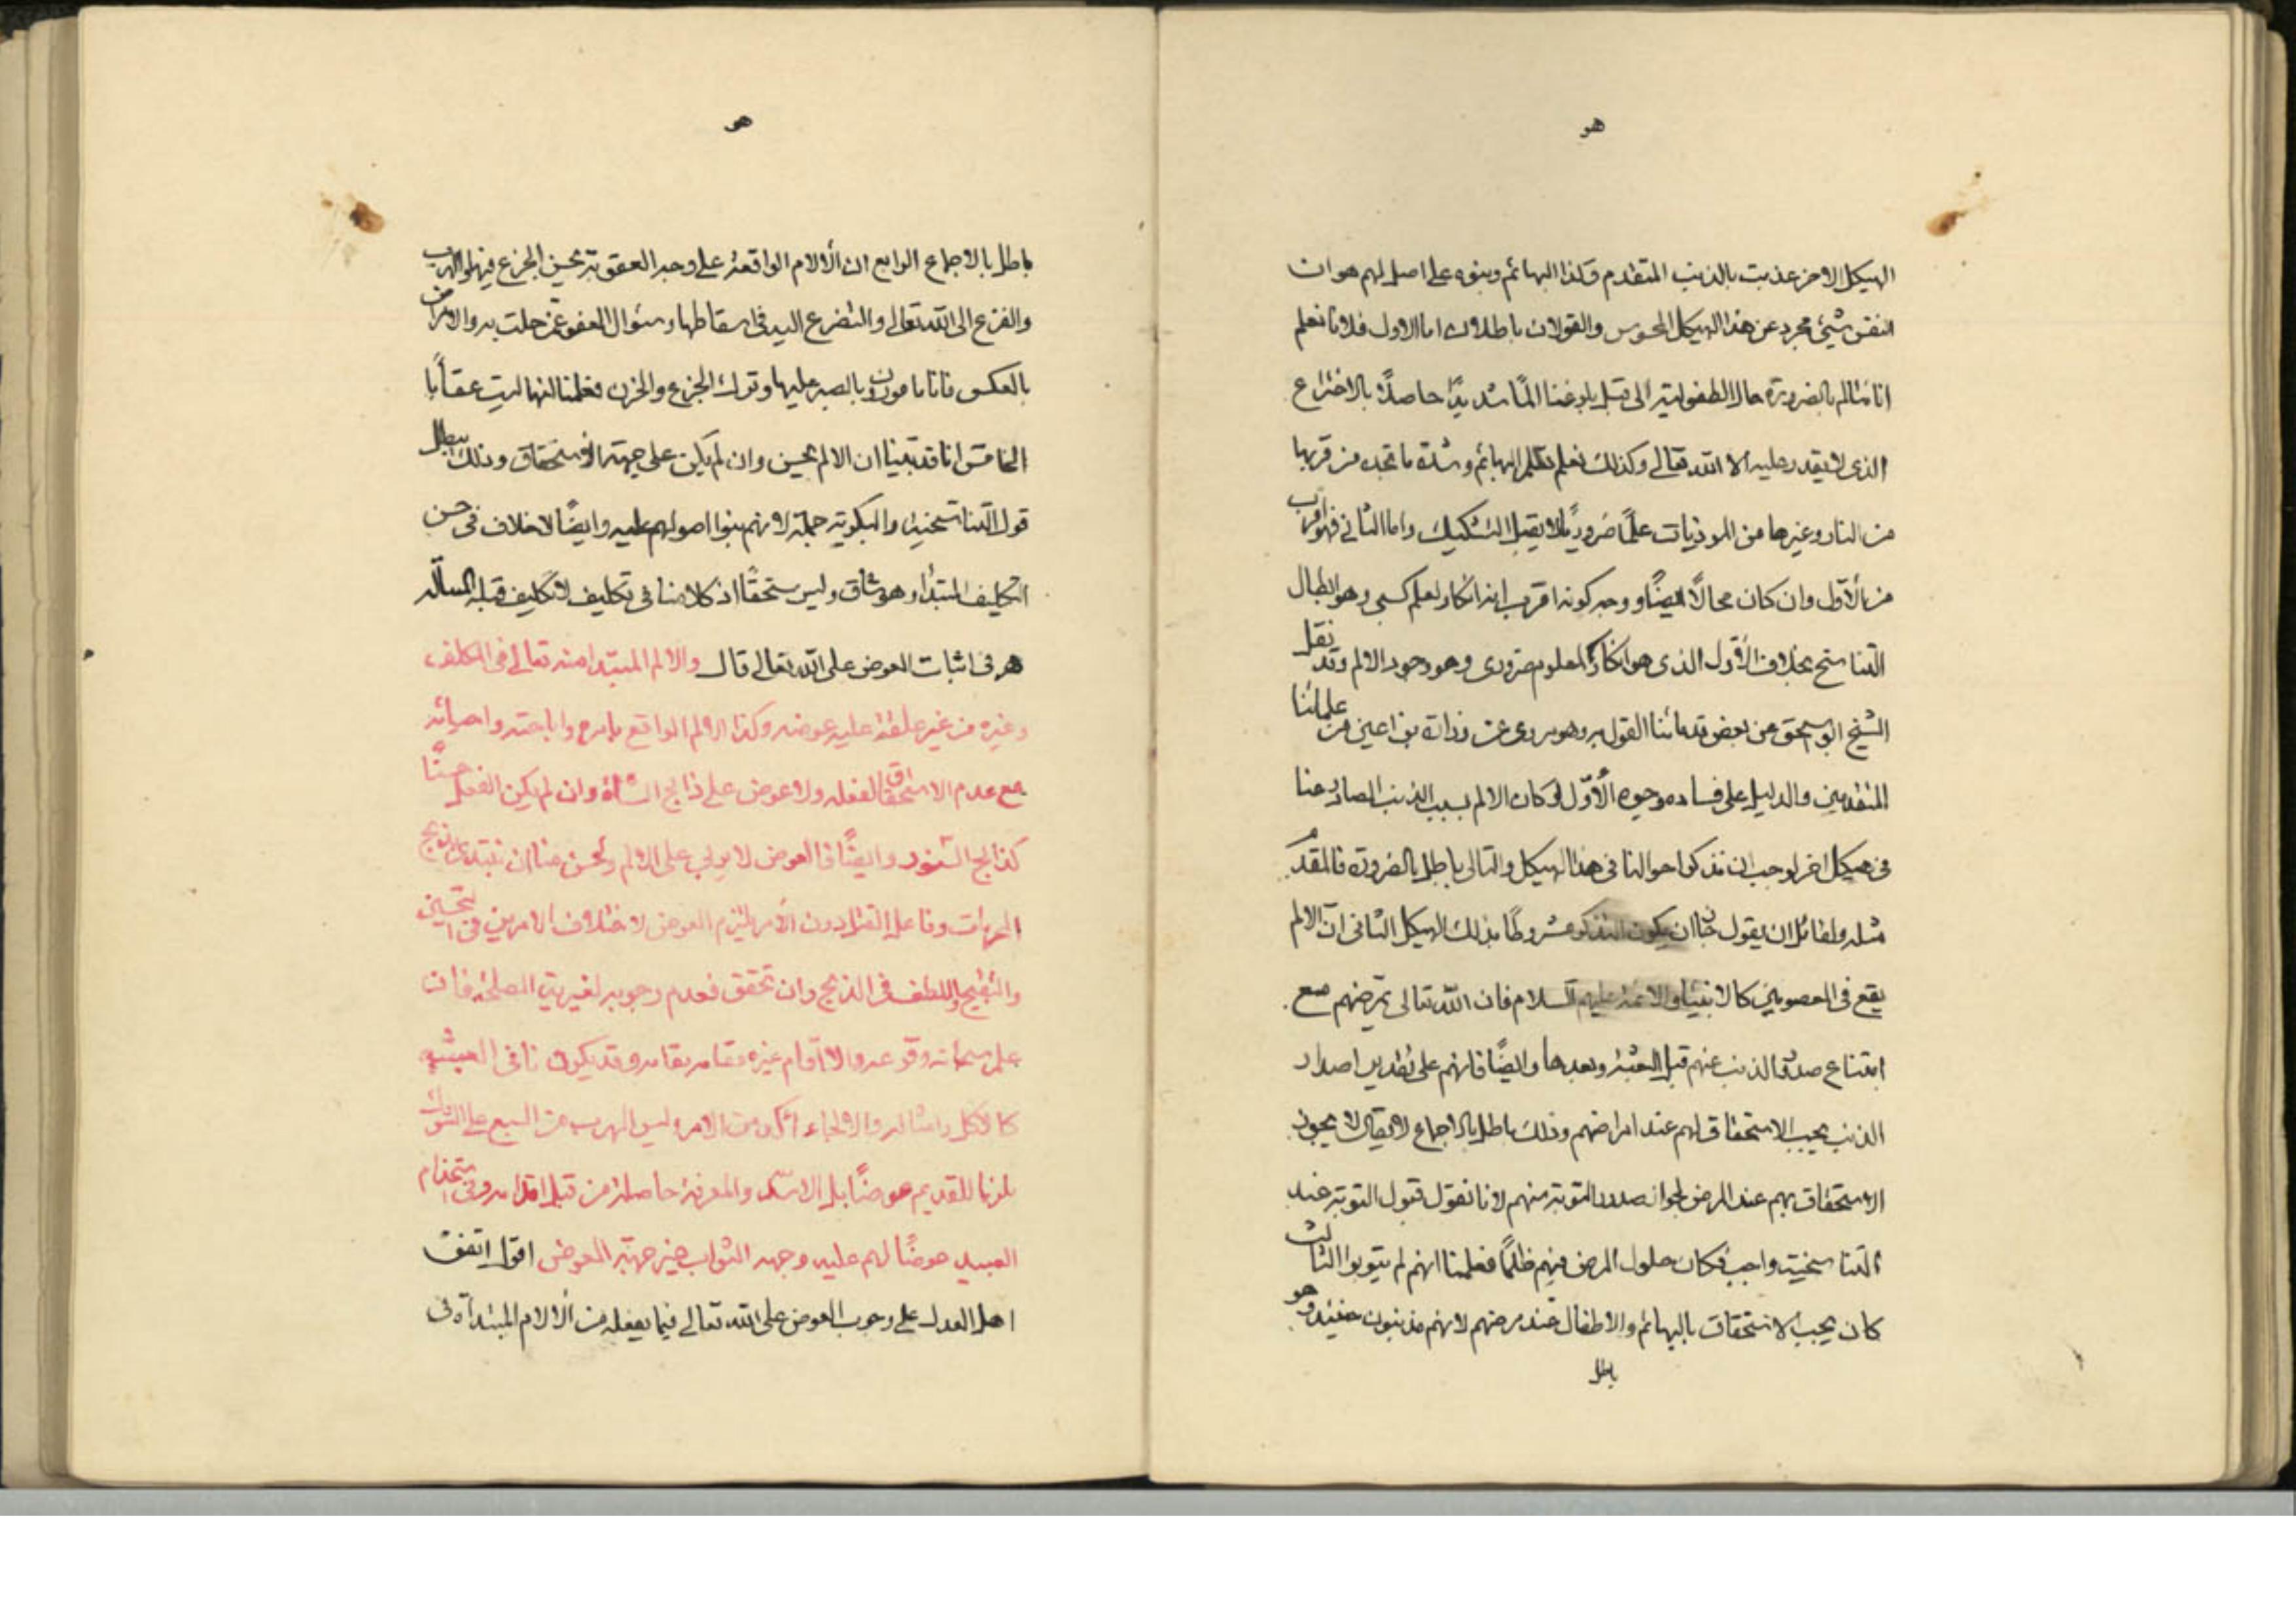 هو
الهيكل الاخر عذبت بالذنب المتقدم وكذا البهائم وبنوه على اصل لهم هو ان
النفس شيئ مجرد عن هذا الهيكل المحسوس والقولان باطلان اما الاول فلانا نعلم
انا نتالم بالضرورة حال الطفولية الى قبل بلوغنا المًا شديدًا حاصلًا بالاختراع
الذى لا يقدر عليه الا الله تعالى وكذلك نعلم تالم البهائم وشدة ما تجده من قربها
من النار وغيرها من الموذيات علمًا ضروريًا لا يقبل التشكيك واما الثانى فهو اقرب
من الأوّل وان كان محالًا ايضًا ووجه كونه اقرب انه انكار لعلم كسبى وهو ابطال
التناسخ بخلاف الأوّل الذى هو انكار لمعلوم ضرورى وهو وجود الالم وقد نقل
الشيخ ابو اسحق عن بعض قدمائنا القول به وهو مروى عن زرارة بن اعين من علمائنا
المتقدمين والدليل على فساده وجوه الأوّل لو كان الالم بسبب الذنب الصادر عنا
فى هيكل اخر لوجب ان نذكر احوالنا فى هذا الهيكل والتالى باطل بالضرورة فالمقدم
مثله ولقائل ان يقول جاز ان يكون التذكر مشروطًا بذلك الهيكل الثانى انّ الالم
يقع فى المعصومين كالانبياء والائمة عليهم السلام فان الله تعالى يمرضهم مع
امتناع صدور الذنب عنهم قبل البعثة وبعدها وايضًا فانهم على تقدير اصدار
الذنب يجب الاستخفاف لهم عند امراضهم وذلك باطل بالاجماع لا يقال لا يجوز
الاستخفاف بهم عند المرض لجواز صدور التوبة منهم لانا نقول قبول التوبة عند
التناسخية واجب فكان حلول المرض فيهم ظلمًا فعلمنا انهم لم يتوبوا الثالث
كان يجب الاستخفاف بالبهائم والاطفال عند مرضهم لانهم مذنبون حينئذ وهو
باطل
هو
باطل بالاجماع الرابع ان الألام الواقعة على وجه العقوبة يحسن الجزع فيها والهرب
والفزع الى الله تعالى والتضرع اليه فى اسقاطها وسئوال العفو عمّن حلت به والامراض
بالعكس فانا مامورون بالصبر عليها وترك الجزع والحزن فعلمنا انها ليت عقاًبا
الخامس انا قد بينا ان الالم يحسن وان لم يكن على جهة الاستحقاق وذلك يبطل
قول التناسخية والبكرية جملة لانهم بنوا اصولهم عليه وايضًا لا خلاف فى حسن
التكليف المبتدا وهو شاق وليس مستحقًا اذ كلامنا فى تكليف لا تكليف قبله المسألة
هـ فى اثبات العوض على الله تعالى قال والالم المبتدا منه تعالى فى المكلف
وغيره من غير علقة عليه عوضه وكذا الالم الواقع بامره واباحته والجائه
مع عدم الاستحقاق لفعله ولا عوض على ذابح الشاة وان لم يكن الفعل حسنًا
كذابح السنور وايضًا فالعوض لا يولى على الالم ويحسن منا ان نبتدى بذبح
المريات وفاعل القتل دون الأمر يلتزم العوض لاختلاف الامرين فى التحسين
والتقبيح واللطف فى الذبح وان تحقق فعدم وجوبه لغيريّة المصلحة فان
علم سبحانه وقوعه والا اقام غيره مقامه بقامه وقد يكون نافى العبثية
كالاكل وامثاله والالجاء اكد من الامر وليس الهرب من السبع على الشوك
ملزما للقديم عوضًا بل الاسد والمعرفة حاصلة من قبل اقدامه وفى استخدام
العبيد عوضًا لهم عليه وجهة الثواب غير جهة العوض اقول اتفق
اهل العدل على وجوب العوض على الله تعالى فيما يفعله من ألالام المبتداة فى